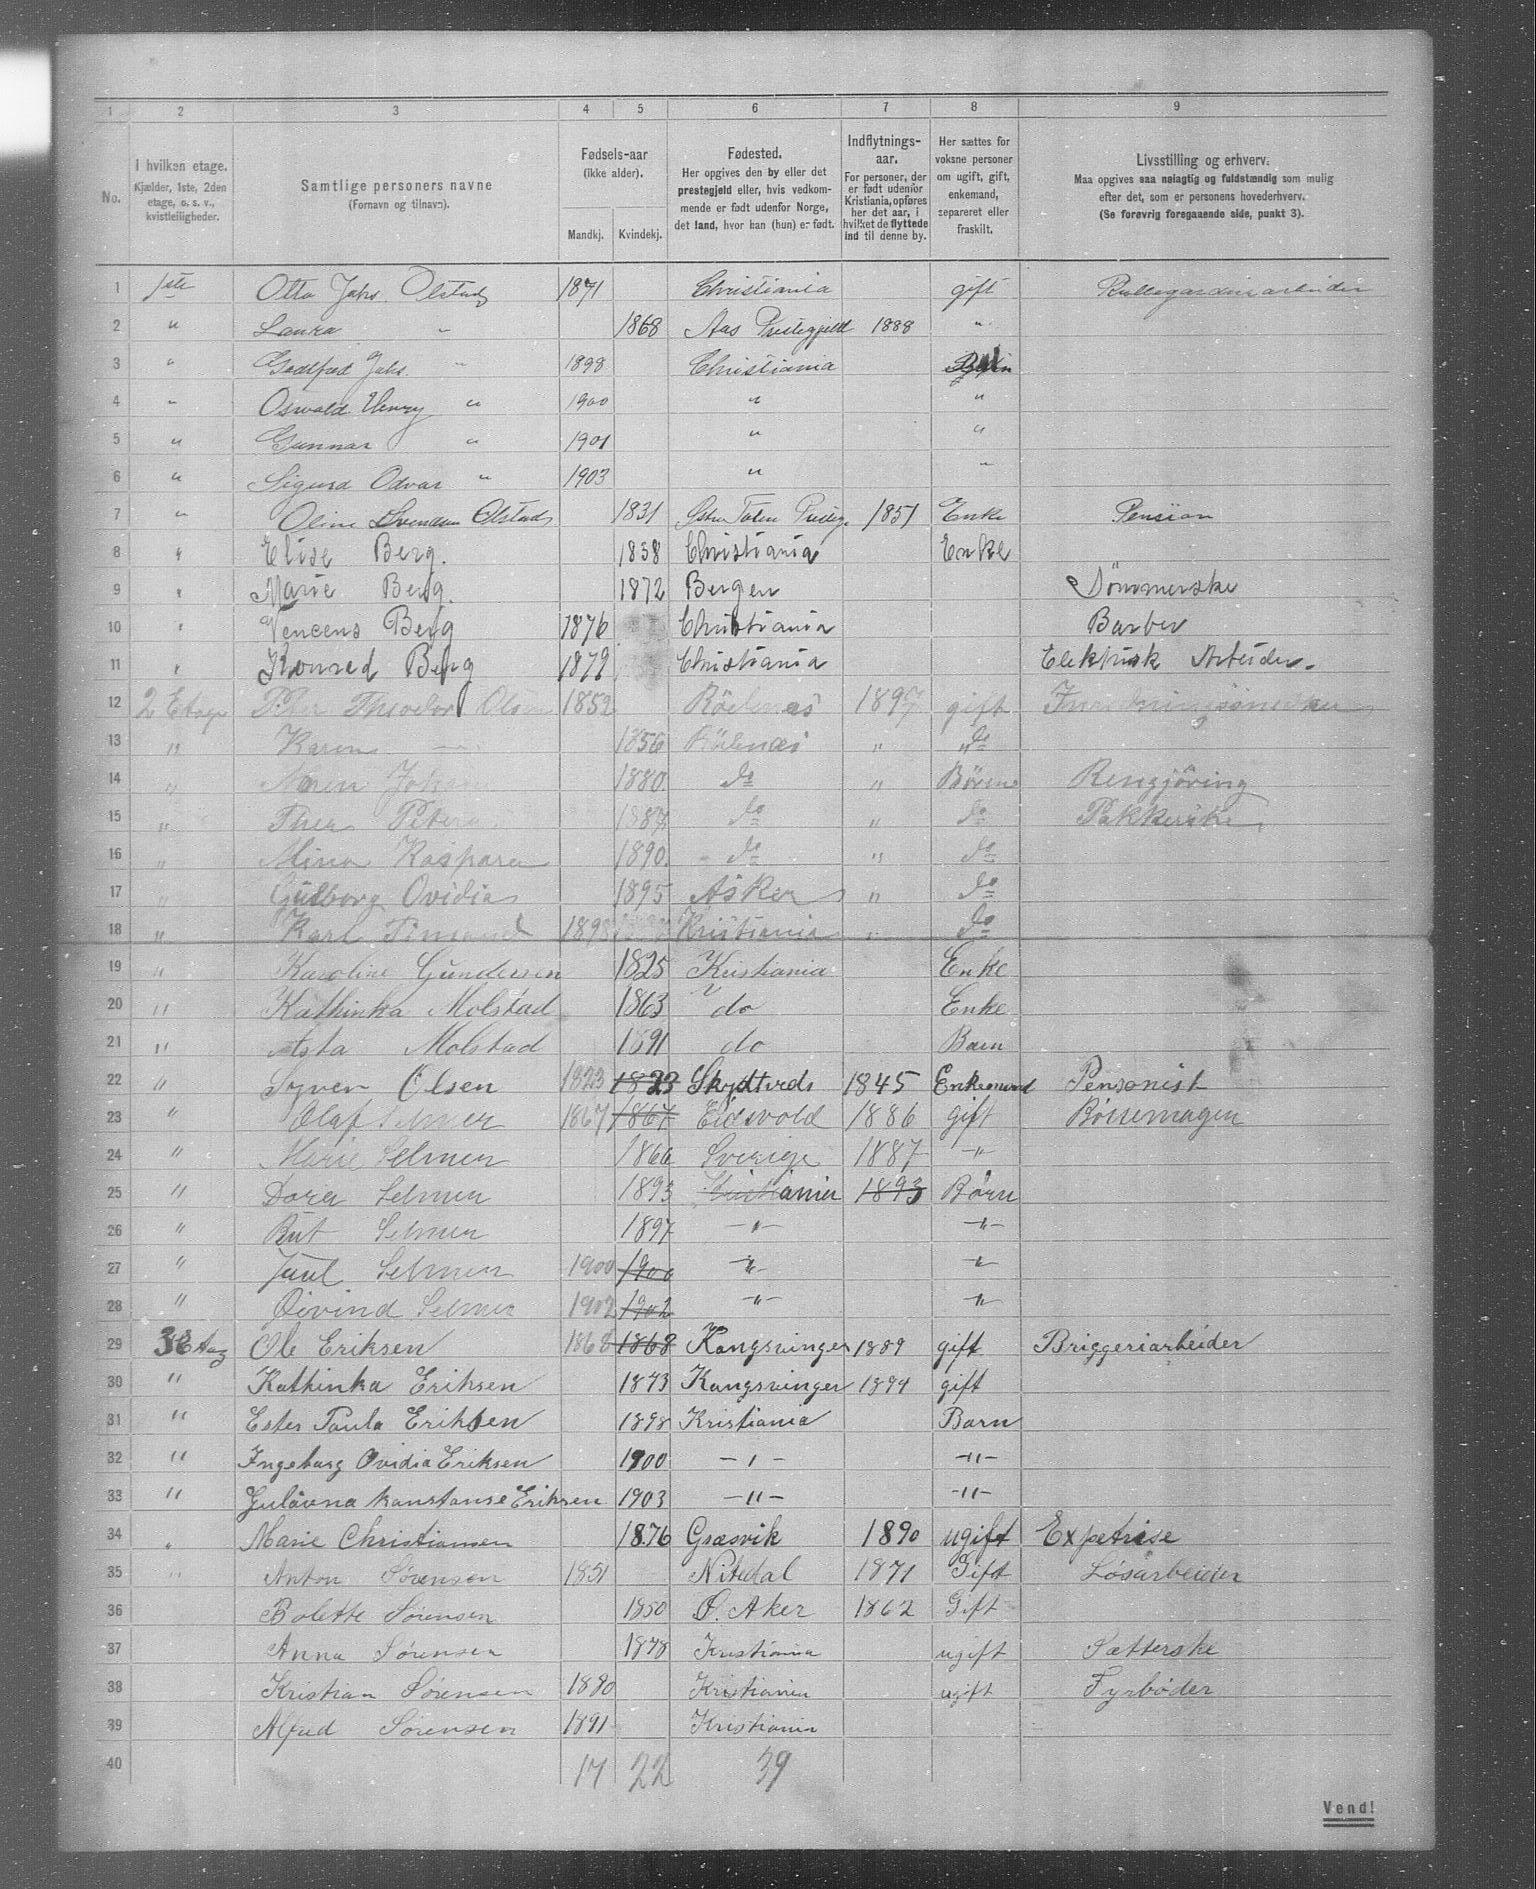 1 2 3 4 5 6 7 8 9
No.
I hvilken etage.
Kjælder, 1ste, 2den
etage, o. s. v.,
kvistleiligheder.
Samtlige personers navne
(Fornavn og tilnavn).
Fødsels-aar
(ikke alder).
Mandkj. Kvindekj.
Fødested.
Her opgives den by eller det
prestegjeld eller, hvis vedkom-
mende er født udenfor Norge,
det land, hvor han (hun) er født.
Indflytnings-
aar.
For personer, der
er født udenfor
Kristiania, opføres
her det aar, i
hvilket de flyttede
ind til denne by.
Her sættes for
voksne personer
om ugift, gift,
enkemand,
separeret eller
fraskilt.
Livsstilling og erhverv.
Maa opgives saa nøiagtig og fuldstændig som mulig
efter det, som er personens hovederhverv.
(Se forøvrig foregaaende side, punkt 3).
1 1ste Otto Johs. Olstad 1871 Christiania gift
2 " Laura " 1868 Aas Prestegjeld 1888 "
3 " Johs. " 1898 Christiania
4 " Oswald Henry " 1900 " "
5 " Gunnar " 1901 " "
6 " Sigurd Odvar " 1903 " "
7 " Oline Svendsen Olstad 1831 Toten 1851 Enke Pension
8 " Elise Berg. 1838 Christiania Enke
9 " Marie Berg. 1872 Bergen Sømmerske
10 " Vencens Berg 1876 Christiania Barber
11 " Konrad Berg 1879 Christiania Elektrisk Arbeider.
12 2 Etage Peter Theodor Olsen 1852 Rödenæs 1897 gift
13 " Karen 1856 Rödenæs " do
14 " 1880. do " Börn Rengjöring
15 " Thea Petera 1887 do " do Pakkerske
16 " Mina Kaspara 1890. do " do
17 " Gudborg Ovidia 1895 Asker " do
18 " Karl 1898 Kristiania " do
19 " Karoline Gundersen 1825 Kristiania Enke
20 " Kathinka Molstad 1863 do Enke
21 " Asta Molstad 1891 do Barn
22 " Syver Olsen 1823 1823 1845 Enkemand Pensonist
23 " Olaf Selmer 1867 1867 Eidsvold 1886 gift Börsemager
24 " Marie Selmer 1866 Sverige 1887 -"-
25 " Dora Selmer 1893 Christiania 1893 Børn
26 " Rut Selmer 1897 -"- -"-
27 " Juul Selmer 1900 1900 -"- -"-
28 " Øivind Selmer 1902 1902 -"- -"-
29 3 Etag Ole Eriksen 1868 1868 Kongsvinger 1889 gift Bryggeriarbeider
30 " Kathinka Eriksen 1873 Kongsvinger 1894 gift
31 " Ester Paula Eriksen 1898 Kristiania Barn
32 " Ingeborg Ovidia Eriksen 1900 -"- -"-
33 " Gulovna Konstanse Eriksen 1903 -"- -"-
34 " Marie Christiansen 1876 Græsvik 1890 ugift Expetrise
35 " Anton Sørensen 1851 Nitedal 1871 Gift Løsarbeider
36 Bolette Sørensen 1850 Ø. Aker 1862 Gift
37 Anna Sørensen 1878 Kristiania ugift Sætterske
38 Kristian Sørensen 1880 Kristiania ugift Fyrbøder
39 Alfred Sørensen 1891 Kristiania
40 17 22 39
Vend!